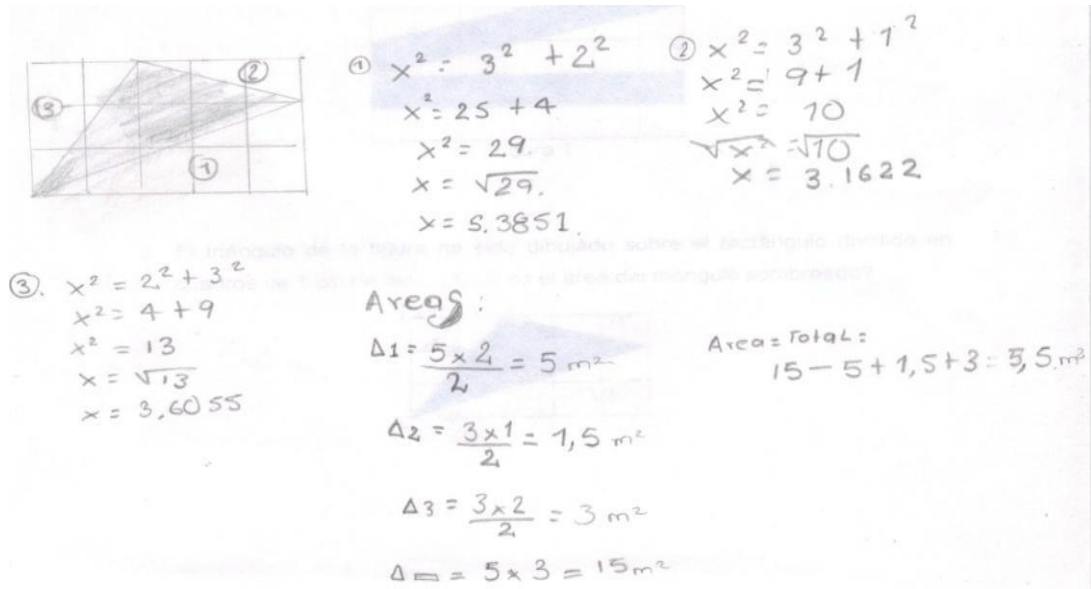 ① x² = 3² + 2²
x² = 25 + 4
x² = 29
x = √29.
x = 5.3851.
② x² = 3² + 1²
x² = 9 + 1
x² = 10
√x² = √10
x = 3.1622
③
②
①
③. x² = 2² + 3²
x² = 4 + 9
x² = 13
x = √13
x = 3,6055
Areas:
Δ1 = 5 x 2 / 2 = 5 m²
Δ2 = 3 x 1 / 2 = 1,5 m²
Δ3 = 3 x 2 / 2 = 3 m²
Δ▭ = 5 x 3 = 15 m²
Area = Total:
15 - 5 + 1,5 + 3 = 5,5 m²